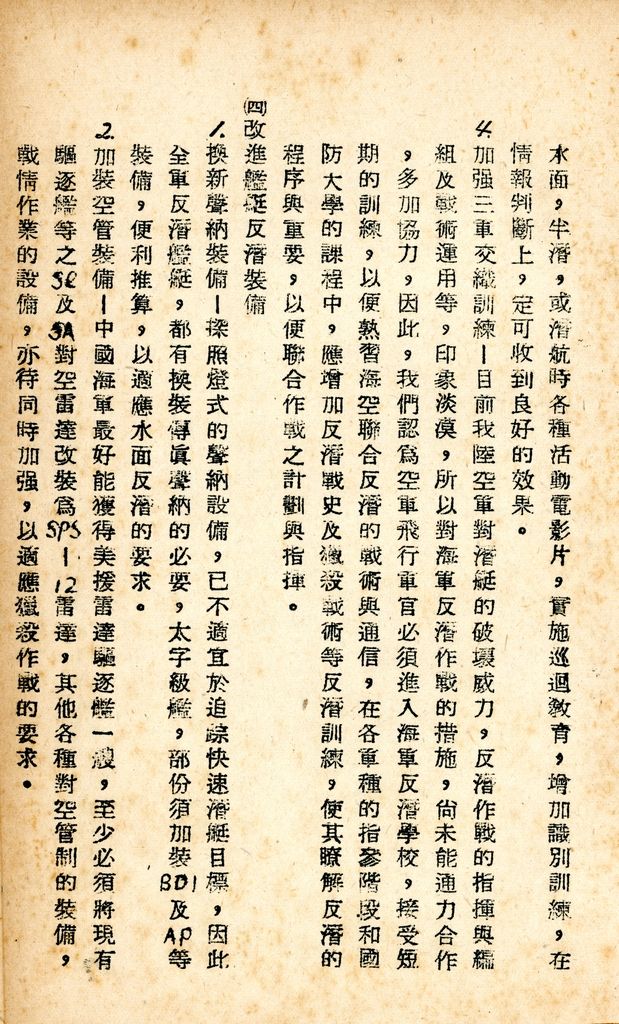 水面，半潛，或潛航時各種活動電影片，實施巡迴教育，增加識別訓練，在
情報判斷上，定可收到良好的效果。
4.加强三軍交織訓練—目前我陸空軍對潛艇的破壞威力，反潛作戰的指揮與編
組及戰術運用等，印象淡漠，所以對海軍反潛作戰的措施，尚未能通力合作
，多加協力，因此，我們認爲空軍飛行軍官必須進入海軍反潛學校，接受短
期的訓練，以便熟習海空聯合反潛的戰術與通信，在各軍種的指參階段和國
防大學的課程中，應增加反潛戰史及獵殺戰術等反潛訓練，使其瞭解反潛的
程序與重要，以便聯合作戰之計劃與指揮。
㈣改進艦艇反潛裝備
1.換新聲納裝備—探照燈式的聲納設備，已不適宜於追踪快速潛艇目標，因此
全軍反潛艦艇，都有換裝傳眞聲納的必要，太字級艦，部份須加裝BDI及AP等
裝備，便利推算，以適應水面反潛的要求。
2.加裝空管裝備—中國海軍最好能獲得美援雷達驅逐艦一艘，至少必須將現有
驅逐艦等之SC及SA對空雷達改裝爲SPS—12雷達，其他各種對空管制的裝備，
戰情作業的設備，亦待同時加强，以適應獵殺作戰的要求。